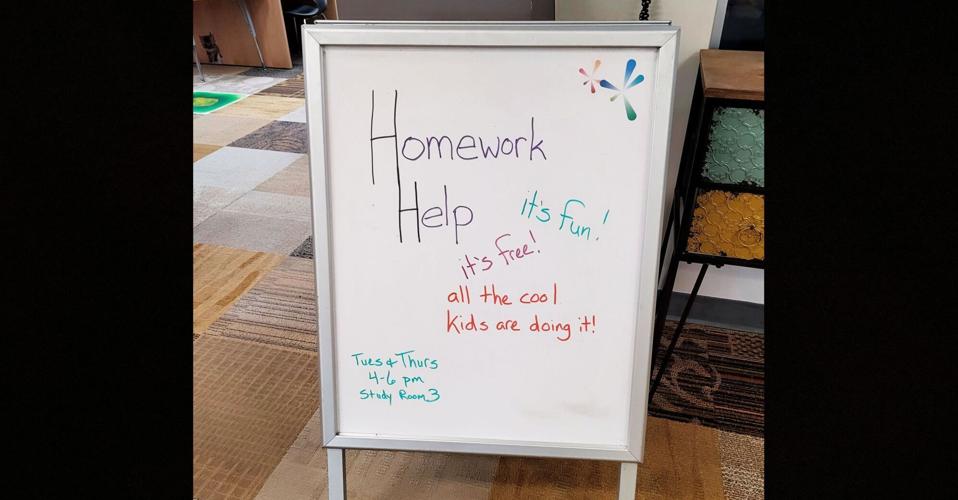 Homework
Help
it's fun!
it's free!
all the cool
kids are doing it!
Tues & Thurs
4-6 pm
Study Room 3